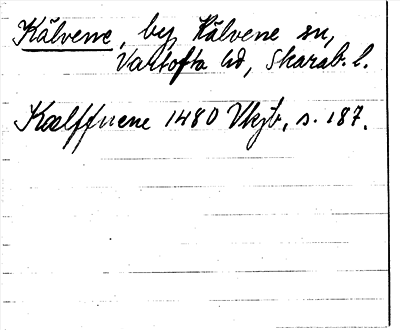 Kälvene, by, Kälvene sn,
Vartofta hd, Skarab. l.
Kælffuene 1480 Vkjb, s. 187.